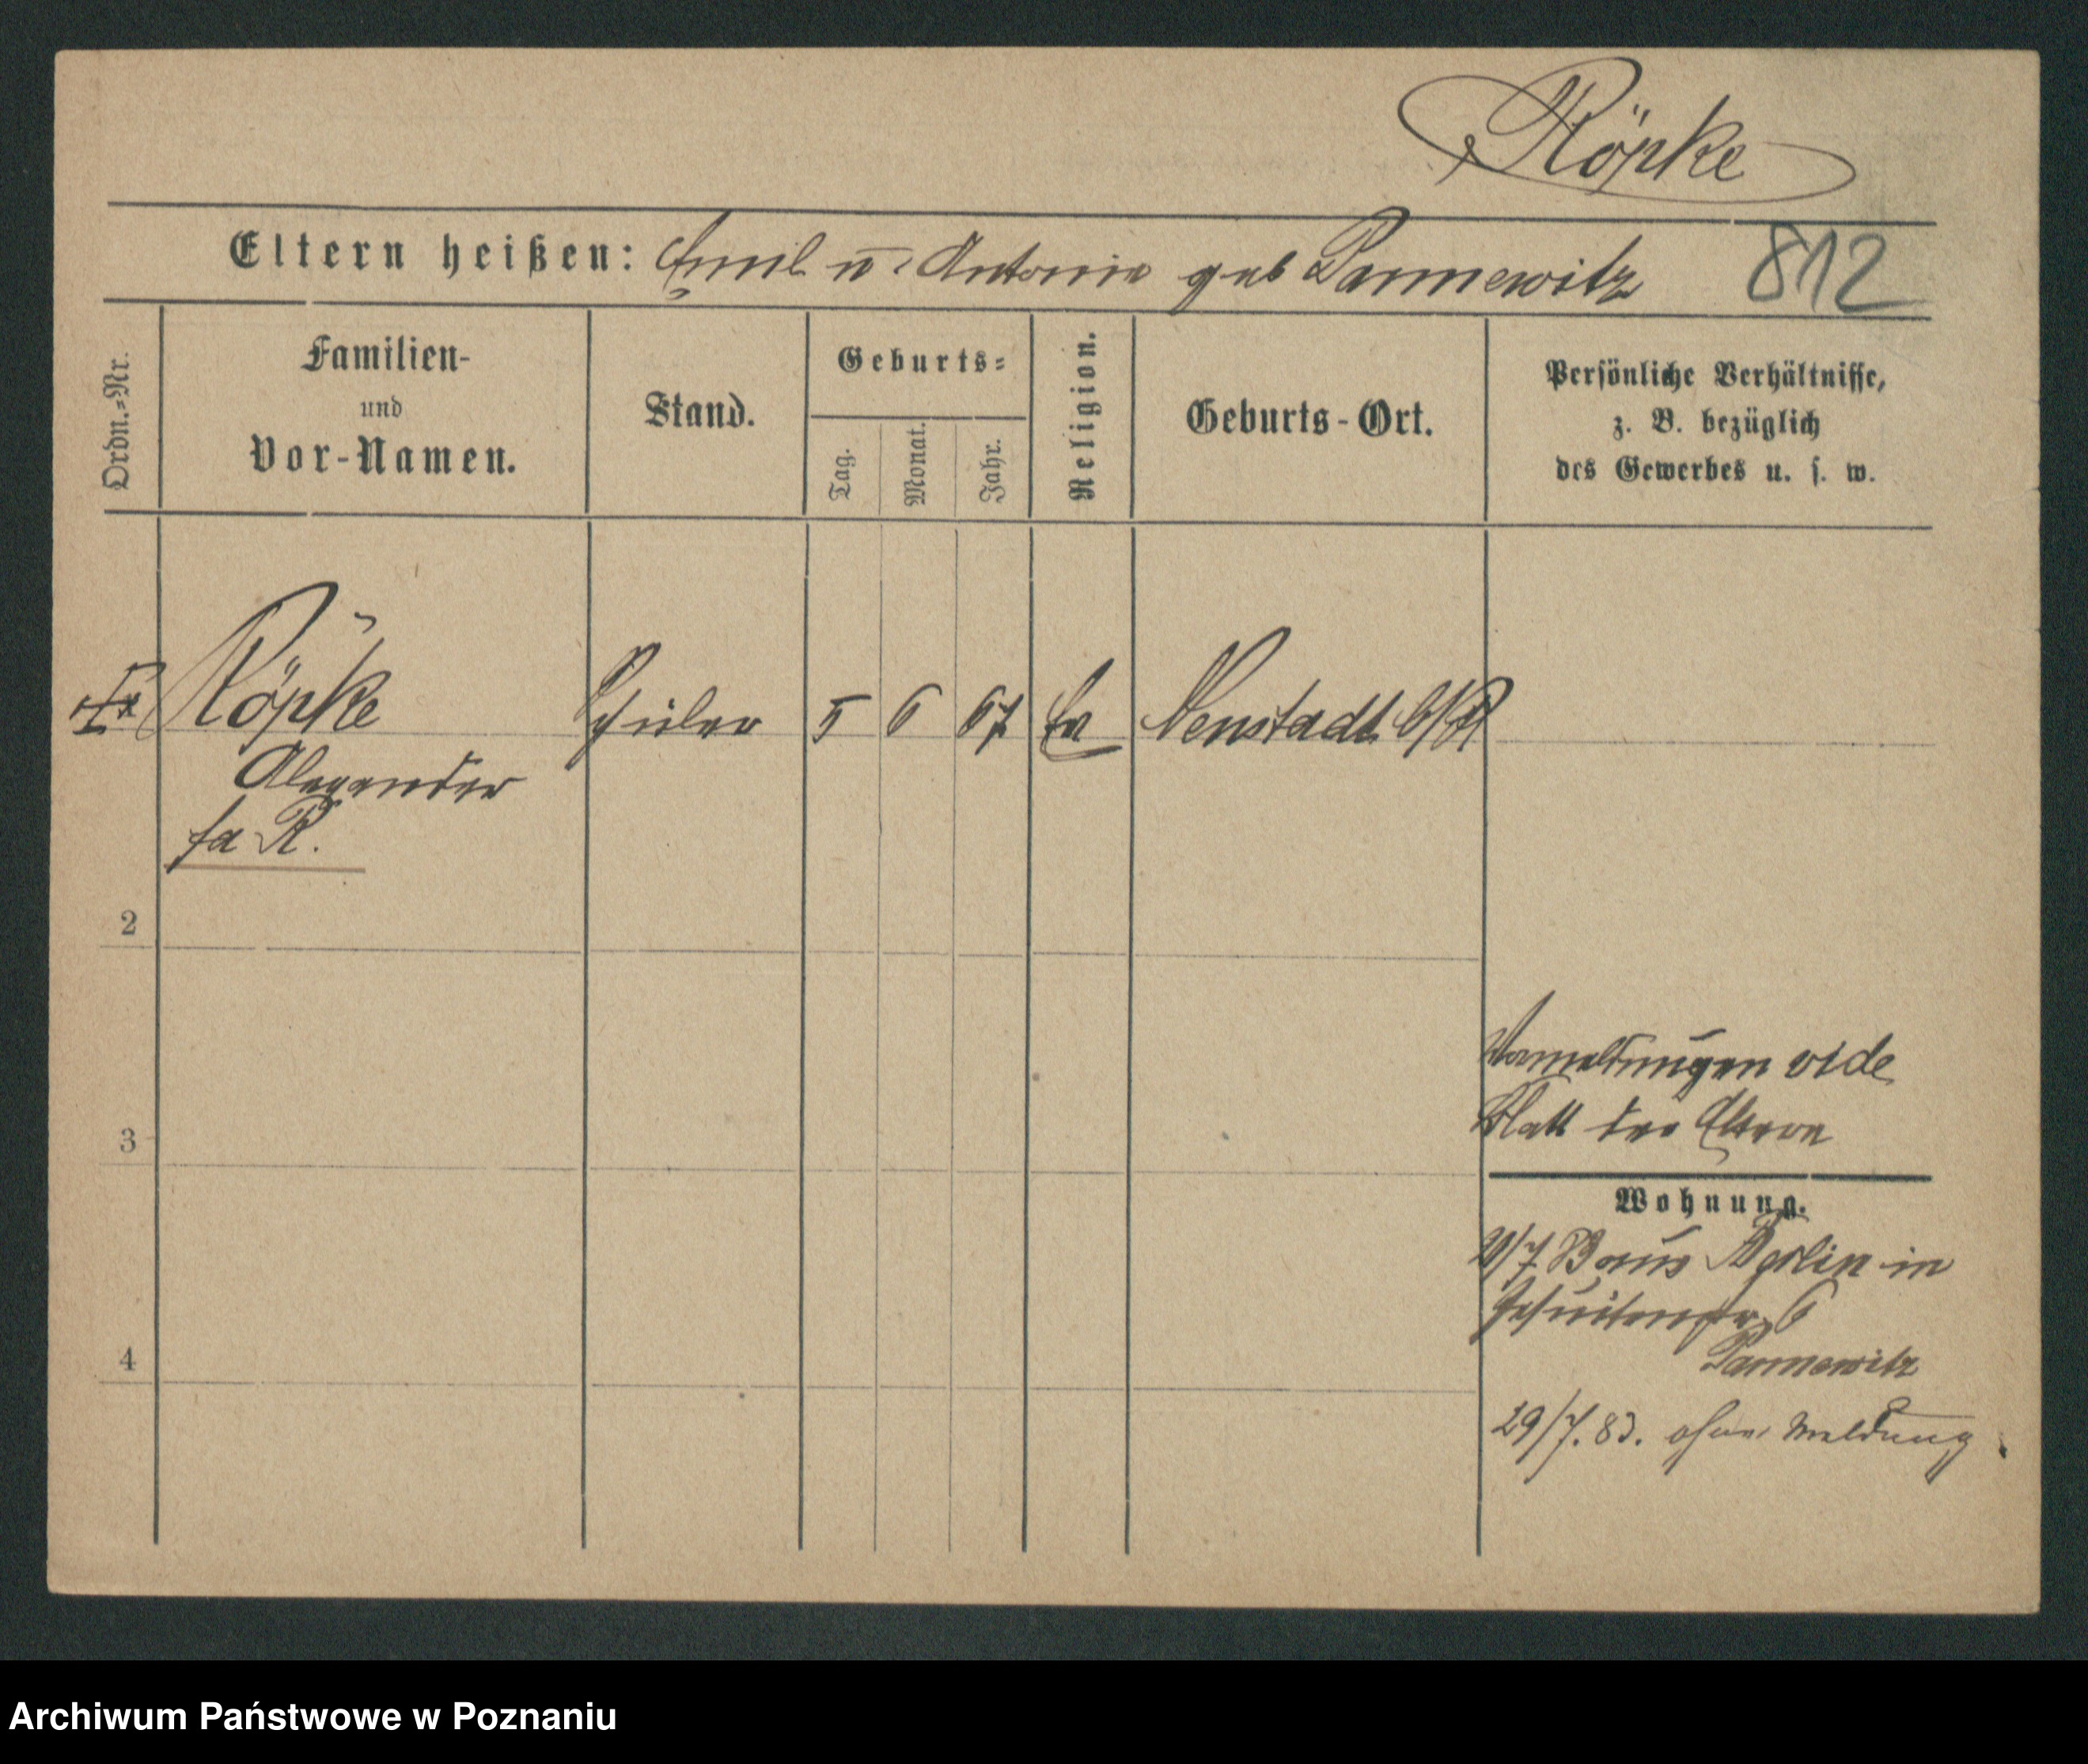 Röpke
Eltern heißen: Emil u. Antonie geb Pannewitz 812
Ordn.=Nr.
Familien-
und
Vor-Namen.
Stand.
Geburts=
Tag.
Monat.
Jahr.
Religion.
Geburts-Ort.
Persönliche Verhältnisse,
z. B. bezüglich
des Gewerbes u. s. w.
Röpke Schüler 5 6 67 Ev Neustadt b/P
Alexander
fa R.
2
3
4
Vormeldungen vide
Blatt der Eltern
Wohnung.
/7 83 aus Berlin in
Jesuitenstr 6
Pannewitz
29/7. 83. ohne Meldung